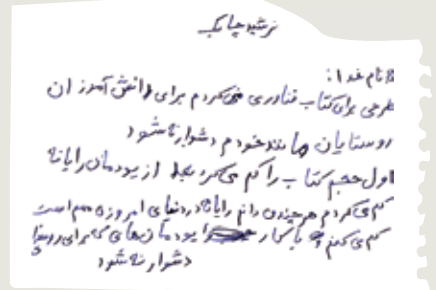 نرشید چابک
بنام خدا:
طرحی برای کتاب فناوری می‌کردم برای دانش آموزان
روستایان مانند خودم دشوار نا شود
اول حجم کتاب را کم می‌کرد بعد از پودمان رایانه
کم می‌کردم هرچند می دانم رایانه در دنیای امروزی مهم است
کم می کنم با کار پودمان‌های که برای روستا
دشوار نه شود